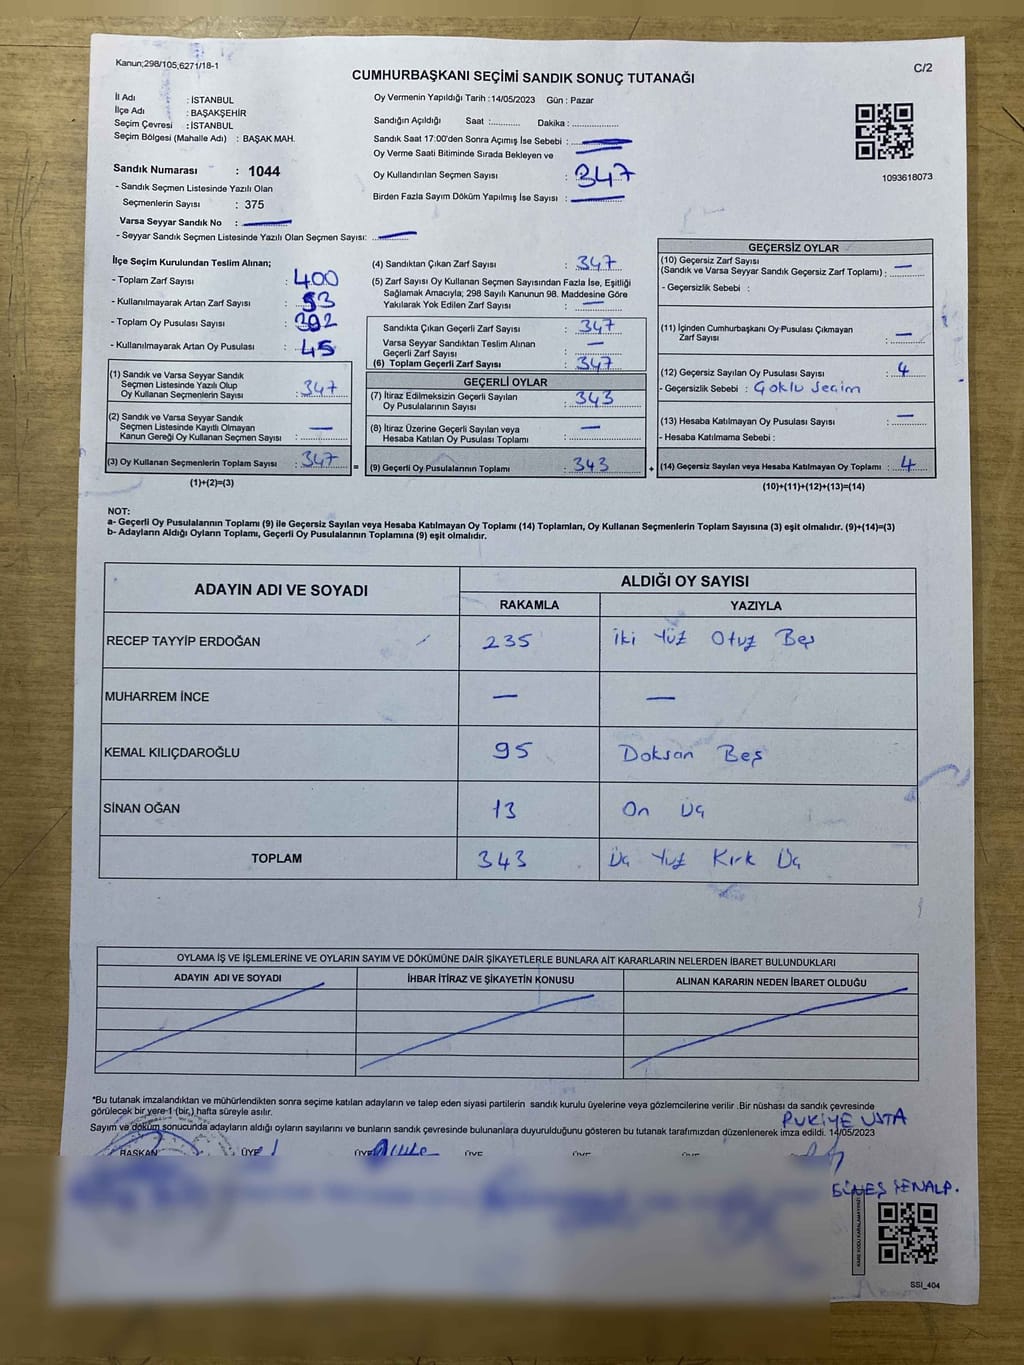 Kanun;298/105,6271/18-1
C/2
CUMHURBAŞKANI SEÇİMİ SANDIK SONUÇ TUTANAĞI
İl Adı : İSTANBUL
İlçe Adı : BAŞAKŞEHİR
Seçim Çevresi : İSTANBUL
Seçim Bölgesi (Mahalle Adı) : BAŞAK MAH.
Sandık Numarası : 1044
- Sandık Seçmen Listesinde Yazılı Olan
Seçmenlerin Sayısı : 375
Varsa Seyyar Sandık No :
- Seyyar Sandık Seçmen Listesinde Yazılı Olan Seçmen Sayısı:
Oy Vermenin Yapıldığı Tarih : 14/05/2023 Gün : Pazar
Sandığın Açıldığı Saat :........... Dakika :..................
Sandık Saat 17:00'den Sonra Açımış İse Sebebi :
Oy Verme Saati Bitiminde Sırada Bekleyen ve
Oy Kullandırılan Seçmen Sayısı : 347
Birden Fazla Sayım Döküm Yapılmış İse Sayısı :
1093618073
İlçe Seçim Kurulundan Teslim Alınan;
- Toplam Zarf Sayısı : 400
- Kullanılmayarak Artan Zarf Sayısı : 53
- Toplam Oy Pusulası Sayısı : 392
- Kullanılmayarak Artan Oy Pusulası : 45
(1) Sandık ve Varsa Seyyar Sandık
Seçmen Listesinde Yazılı Olup
Oy Kullanan Seçmenlerin Sayısı : 347
(2) Sandık ve Varsa Seyyar Sandık
Seçmen Listesinde Kayıtlı Olmayan
Kanun Gereği Oy Kullanan Seçmen Sayısı : —
(3) Oy Kullanan Seçmenlerin Toplam Sayısı : 347 =
(1)+(2)=(3)
(4) Sandıktan Çıkan Zarf Sayısı : 347
(5) Zarf Sayısı Oy Kullanan Seçmen Sayısından Fazla İse, Eşitliği
Sağlamak Amacıyla; 298 Sayılı Kanunun 98. Maddesine Göre
Yakılarak Yok Edilen Zarf Sayısı : —
Sandıkta Çıkan Geçerli Zarf Sayısı : 347
Varsa Seyyar Sandıktan Teslim Alınan
Geçerli Zarf Sayısı : —
(6) Toplam Geçerli Zarf Sayısı : 347
GEÇERLİ OYLAR
(7) İtiraz Edilmeksizin Geçerli Sayılan
Oy Pusulalarının Sayısı : 343
(8) İtiraz Üzerine Geçerli Sayılan veya
Hesaba Katılan Oy Pusulası Toplamı : —
(9) Geçerli Oy Pusulalarının Toplamı : 343 +
GEÇERSİZ OYLAR
(10) Geçersiz Zarf Sayısı
(Sandık ve Varsa Seyyar Sandık Geçersiz Zarf Toplamı) : —
- Geçersizlik Sebebi :
(11) İçinden Cumhurbaşkanı Oy Pusulası Çıkmayan
Zarf Sayısı : —
(12) Geçersiz Sayılan Oy Pusulası Sayısı : 4
- Geçersizlik Sebebi : Çoklu Seçim
(13) Hesaba Katılmayan Oy Pusulası Sayısı : —
- Hesaba Katılmama Sebebi :
(14) Geçersiz Sayılan veya Hesaba Katılmayan Oy Toplamı : 4
(10)+(11)+(12)+(13)=(14)
NOT:
a- Geçerli Oy Pusulalarının Toplamı (9) ile Geçersiz Sayılan veya Hesaba Katılmayan Oy Toplamı (14) Toplamları, Oy Kullanan Seçmenlerin Toplam Sayısına (3) eşit olmalıdır. (9)+(14)=(3)
b- Adayların Aldığı Oyların Toplamı, Geçerli Oy Pusulalarının Toplamına (9) eşit olmalıdır.
ADAYIN ADI VE SOYADI ALDIĞI OY SAYISI
RAKAMLA YAZIYLA
RECEP TAYYİP ERDOĞAN 235 İki Yüz Otuz Beş
MUHARREM İNCE — —
KEMAL KILIÇDAROĞLU 95 Doksan Beş
SİNAN OĞAN 13 On Üç
TOPLAM 343 Üç Yüz Kırk Üç
OYLAMA İŞ VE İŞLEMLERİNE VE OYLARIN SAYIM VE DÖKÜMÜNE DAİR ŞİKAYETLERLE BUNLARA AİT KARARLARIN NELERDEN İBARET BULUNDUKLARI
ADAYIN ADI VE SOYADI İHBAR İTİRAZ VE ŞİKAYETİN KONUSU ALINAN KARARIN NEDEN İBARET OLDUĞU
*Bu tutanak imzalandıktan ve mühürlendikten sonra seçime katılan adayların ve talep eden siyasi partilerin sandık kurulu üyelerine veya gözlemcilerine verilir .Bir nüshası da sandık çevresinde
görülecek bir yere 1 (bir,) hafta süreyle asılır.
Sayım ve döküm sonucunda adayların aldığı oyların sayılarını ve bunların sandık çevresinde bulunanlara duyurulduğunu gösteren bu tutanak tarafımızdan düzenlenerek imza edildi. 14/05/2023
RUKİYE USTA
BAŞKAN ÜYE ÜYE ÜYE ÜYE ÜYE
GÜNEŞ ŞENALP.
SSI_404